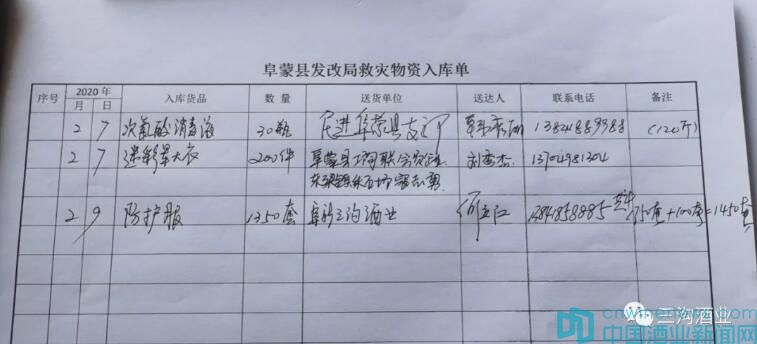 阜蒙县发改局救灾物资入库单
序号 2020年 入库货品 数量 送货单位 送达人 联系电话 备注
月 日
2 7 次氯酸消毒液 30瓶 民进阜蒙县支部 (120斤)
2 7 迷彩军大衣 200件 阜蒙县工商联 13704981304
2 9 防护服 1350套 阜新三沟酒业 何立江 13841858885 +100套=1450套
三沟酒业
cnwinenews.com
中国酒业新闻网